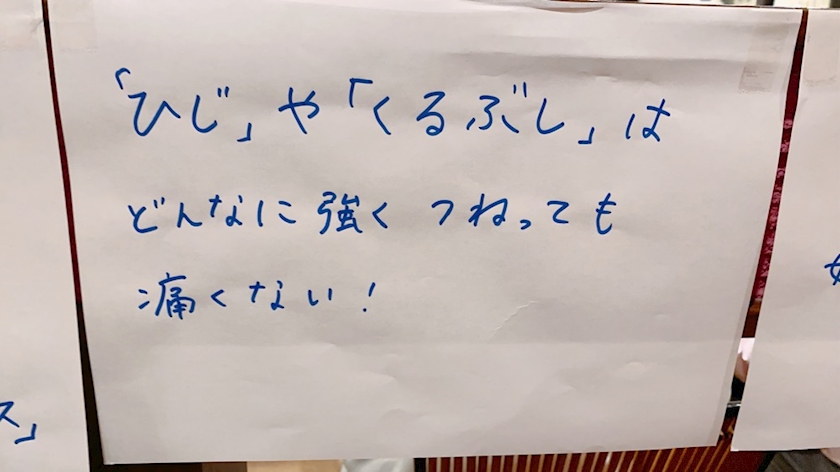 「ひじ」や「くるぶし」は
どんなに強くつねっても
痛くない!
ス」